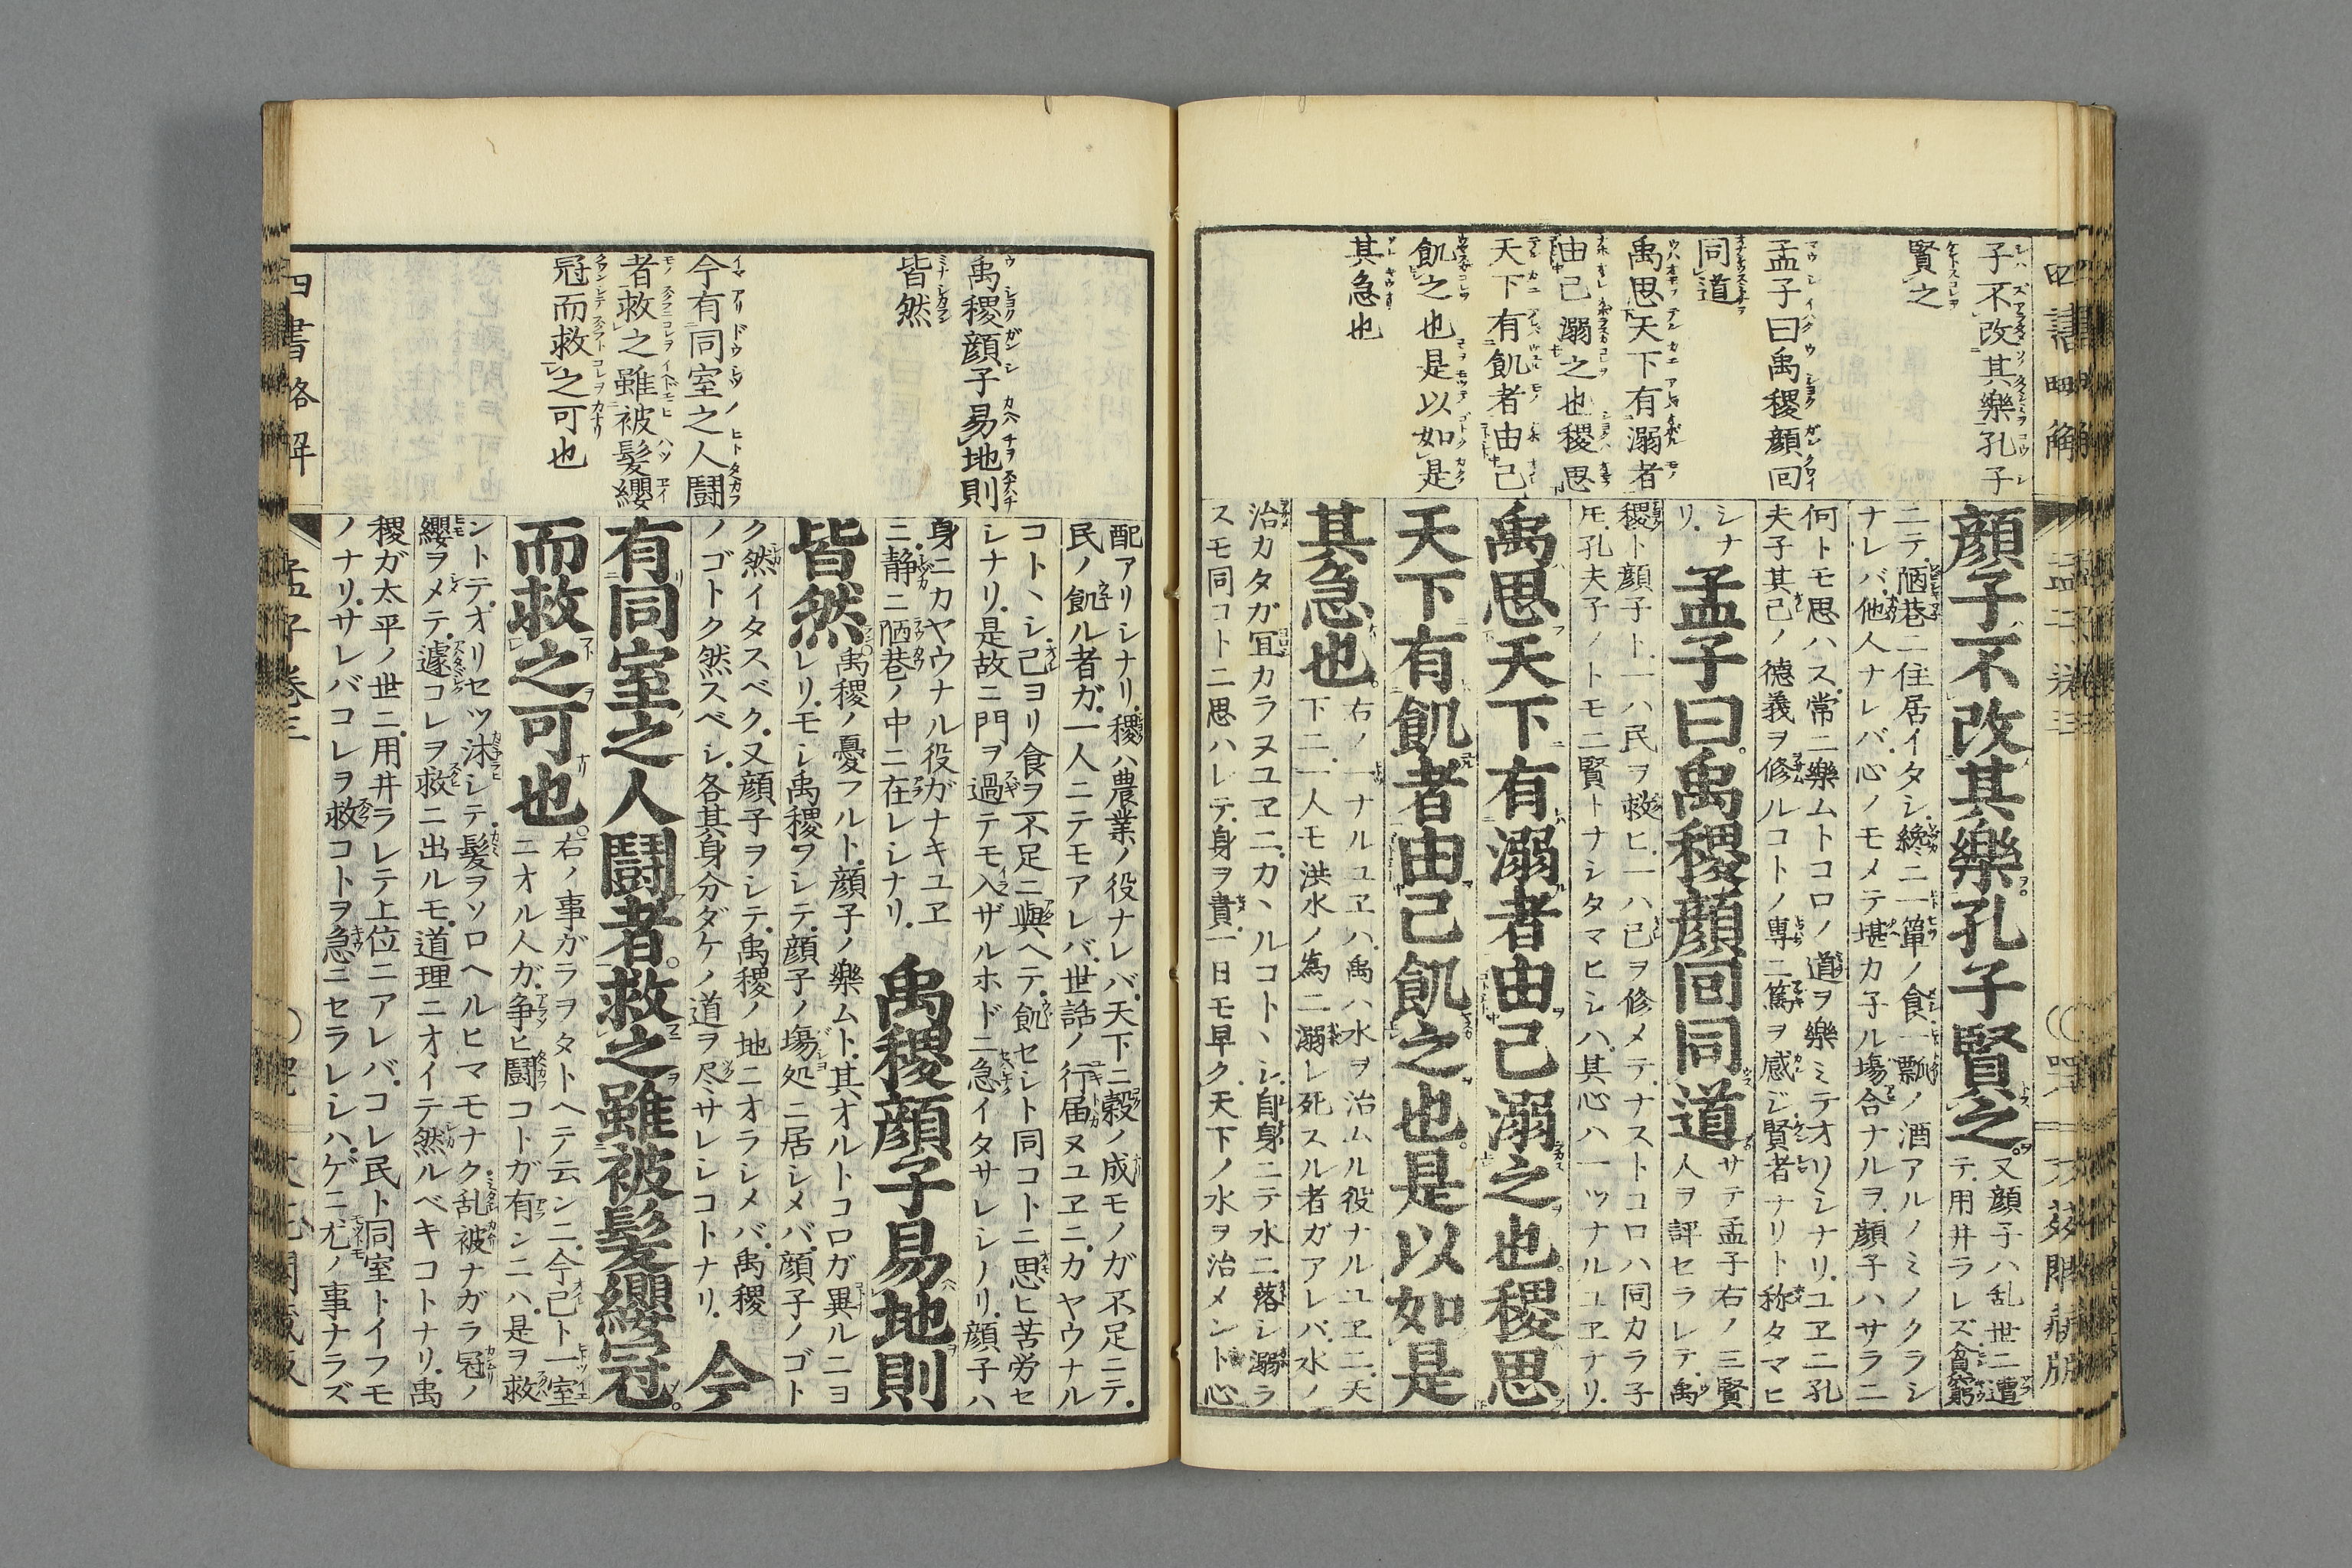 子不改其樂孔子
賢之
孟子曰禹稷顔回
同道
禹思天下有溺者
由己溺之也稷思
天下有飢者由己
飢之也是以如是
其急也
顔子不改其樂孔子賢之
又顔子ハ乱世ニ遭
テ用井ラレズ貧窮
ニテ陋巷ニ住居イタシ纔ニ一簞ノ食一瓢ノ酒アルノミノクラシ
ナレバ他人ナレバ心ノモメテ堪カ子ル塲合ナルヲ顔子ハサラニ
何トモ思ハス常ニ樂ムトコロノ道ヲ樂ミテオリシナリユヱニ孔
夫子其己ノ德義ヲ修ルコトノ專ニ篤ヲ感ジ賢者ナリト称タマヒ
シナ
リ
孟子曰禹稷顔回同道
サテ孟子右ノ三賢
人ヲ評セラレテ禹
稷ト顔子ト一ハ民ヲ救ヒ一ハ己ヲ修メテナストコロハ同カラ子
𪜈孔夫子ノトモニ賢トナシタマヒシハ其心ハ一ツナルユヱナリ
禹思天下有溺者由己溺之也稷思
天下有飢者由己飢之也是以如是
其急也
右ノ一ナルユヱハ禹ハ水ヲ治ムル役ナルユヱニ天
下ニ一人モ洪水ノ爲ニ溺レ死スル者ガアレバ水ノ
治カタガ冝カラヌユヱニカヽルコトヽシ自身ニテ水ニ落シ溺ラ
スモ同コトニ思ハレテ身ヲ責一日モ早ク天下ノ水ヲ治メント心
禹稷顔子易地則
皆然
今有同室之人鬪
者救之雖被髮纓
冠而救之可也
配アリシナリ稷ハ農業ノ役ナレバ天下ニ穀ノ成モノガ不足ニテ
民ノ飢ル者ガ一人ニテモアレバ世話ノ行届ヌユヱニカヤウナル
コトヽシ己ヨリ食ヲ不足ニ與ヘテ飢セシト同コトニ思ヒ苦労セ
シナリ是故ニ門ヲ過テモ入ザルホドニ急イタサレシノリ顔子ハ
身ニカヤウナル役ガナキユヱ
ニ静ニ陋巷ノ中ニ在レシナリ
禹稷顔子易地則
皆然
禹稷ノ憂フルト顔子ノ樂ムト其オルトコロガ異ルニヨ
レリモシ禹稷ヲシテ顔子ノ塲処ニ居シメバ顔子ノゴト
ク然イタスベク又顔子ヲシテ禹稷ノ地ニオラシメバ禹稷
ノゴトク然スベシ各其身分ダケノ道ヲ尽サレシコトナリ
今
有同室之人鬪者救之雖被髮纓冠
而救之可也
右ノ事ガラヲタトヘテ云ンニ今己ト一室
ニオル人ガ争ヒ鬪コトガ有シニハ是ヲ救
ントテオリセツ沐シテ髮ヲソロヘルヒマモナク乱被ナガラ冠ノ
纓ヲメテ遽コレヲ救ニ出ルモ道理ニオイテ然ルベキコトナリ禹
稷ガ太平ノ世ニ用井ラレテ上位ニアレバコレ民ト同室トイフモ
ノナリサレバコレヲ救コトヲ急ニセラレシハゲニ尤ノ事ナラズ
四書略解
孟子卷三